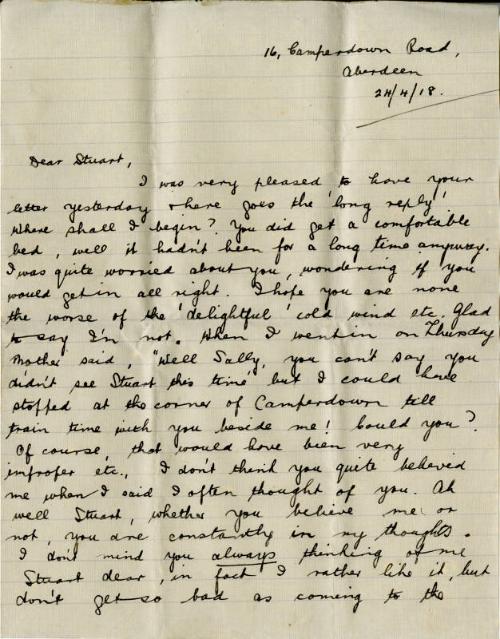 16, Camperdown Road,
Aberdeen
24/4/18.
Dear Stuart,
I was very pleased to have your
letter yesterday & here goes the 'long reply'
where shall I begin? You did get a comfortable
bed, well it hadn't been for a long time anyway.
I was quite worried about you, wondering if you
would get in all right. I hope you are none
the worse of the 'delightful' cold wind etc. Glad
to say I'm not. When I went in on Thursday
Mother said, "Well Sally, you can't say you
didn't see Stuart this time" but I could have
stopped at the corner of Camperdown till
train time with you beside me! Could you?
Of course, that would have been very
improper etc., I don't think you quite believed
me when I said I often thought of you. Ah
well Stuart, whether you believe me or
not, you are constantly in my thoughts.
I don't mind you always thinking of me
Stuart dear, in fact I rather like it, but
don't get so bad as coming to the